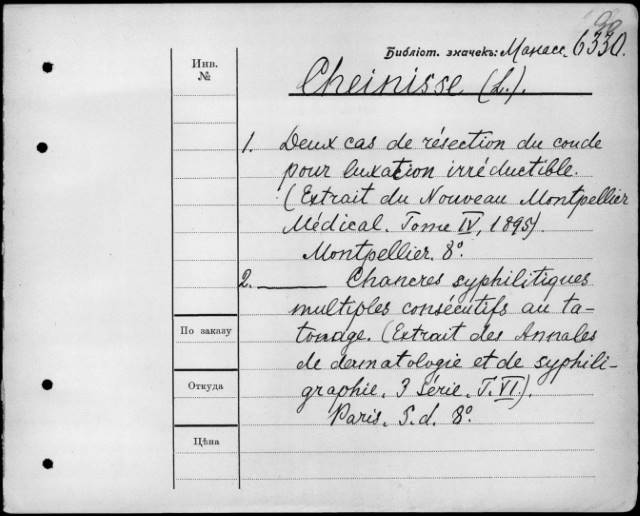 99
Библіот. значекъ: Манасс. 6330.
Инв.
№
Cheinisse (L.).
1. Deux cas de résection du coude
pour luxation irréductible.
(Extrait du Nouveau Montpellier
Médical. Tome IV, 1895).
Montpellier. 8º.
2. ——— Chancres syphilitiques
multiples consécutifs au ta-
touage. (Extrait des Annales
de dermatologie et de syphili-
graphie. 3 Série. T. VI).
Paris. S. d. 8º.
По заказу
Откуда
Цѣна